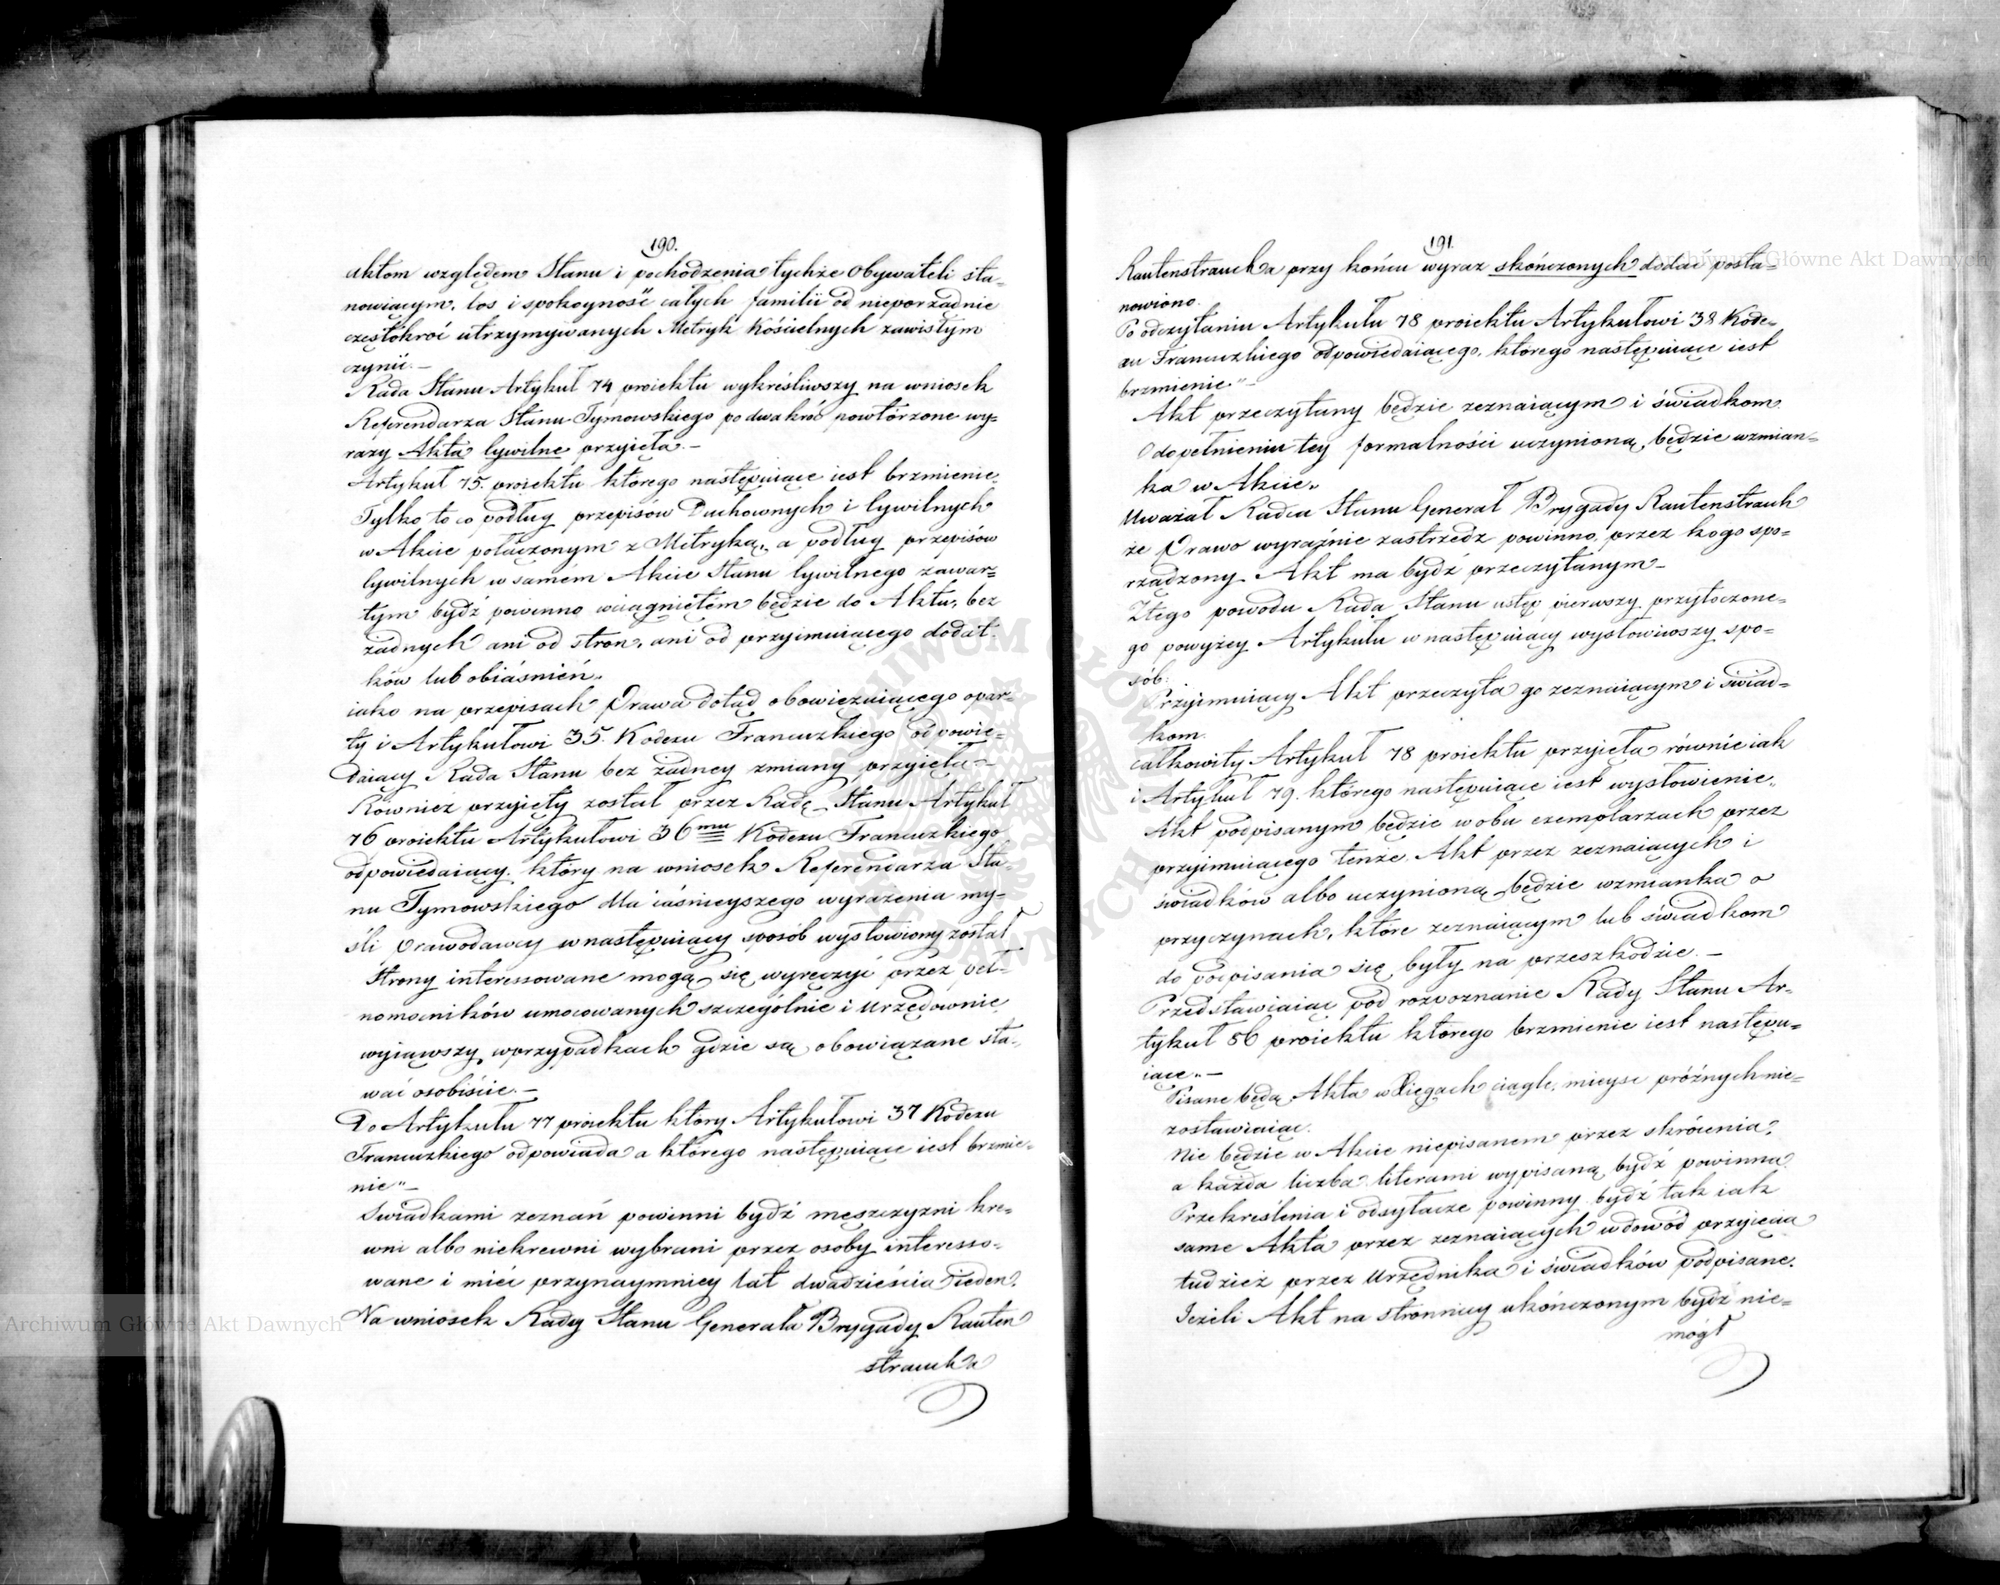 190.
aktom względem Stanu i pochodzenia tychże Obywateli sta-
nowiącym, los i spokoyność całych familii od nieporządnie
częstokroć utrzymywanych Metryk Kościelnych zawisłym
czynić.—
Rada Stanu Artykuł 74 proiektu wykreśliwszy na wniosek
Referendarza Stanu Tymowskiego po dwakroć powtórzone wy-
razy Akta Cywilne przyięła.—
Artykuł 75. proiektu którego następuiące iest brzmienie
Tylko to co podług przepisów Duchownych i Cywilnych
w Akcie połączonym z Metryką, a podług przepisów
Cywilnych w samém Akcie Stanu Cywilnego zawar-
tym bydź powinno wciągniętém będzie do Aktu, bez
żadnych ani od stron, ani od przyimuiącego dodat-
ków lub obiaśnień.
iako na przepisach Prawa dotąd obowiązuiącego opar-
ty i Artykułowi 35. Kodexu Francuzkiego odpowie-
daiący Rada Stanu bez żadney zmiany przyięła.—
Również przyięty został przez Radę Stanu Artykuł
76 proiektu Artykułowi 36mu Kodexu Francuzkiego
odpowiedaiący, który na wniosek Referendarza Sta-
nu Tymowskiego dla iaśnieyszego wyrażenia my-
śli Prawodawcy w następuiący sposób wysłowiony został
Strony interessowane mogą się wyręczyć przez peł-
nomocników umocowanych szczególnie i urzędownie
wyiąwszy w przypadkach gdzie są obowiązane sta-
wać osobiście.—
Do Artykułu 77 proiektu który Artykułowi 37 Kodexu
Francuzkiego odpowiada a którego następuiące iest brzmie-
nie"—
Swiadkami zeznań powinni bydź męszczyzni kre-
wni albo niekrewni wybrani przez osoby interesso-
wane i mieć przynaymniey lat dwadzieścia ieden.
Na wniosek Rady Stanu Generała Brygady Rauten
straucha
191.
Rautenstraucha przy końcu wyraz skończonych dodać posta-
nowiono.
Po odczytaniu Artykułu 78 proiektu Artykułowi 38 Kode-
xu Francuzkiego odpowiedaiącego, którego następuiące iest
brzmienie"—
Akt przeczytany będzie zeznaiącym i świadkom.
O dopełnieniu tey formalności uczynioną będzie wzmian-
ka w Akcie.
Uważał Radca Stanu Generał Brygady Rautenstrauch
że Prawo wyraźnie zastrzedz powinno, przez kogo spo-
rządzony Akt ma bydź przeczytanym—
Z tego powodu Rada Stanu ustęp pierwszy przytoczone-
go powyżey Artykułu w następuiący wysłowiwszy spo-
sób:
Przyimuiący Akt przeczyta go zeznaiącym i świad-
kom.
całkowity Artykuł 78 proiektu przyięła równie iak
i Artykuł 79. którego następuiące iest wysłowienie.
Akt podpisanym będzie w obu exemplarzach przez
przyimuiącego tenże Akt przez zeznaiących i
świadków albo uczynioną będzie wzmianka o
przyczynach, które zeznaiącym lub świadkom
do podpisania się były na przeszkodzie.—
Przedstawiaiąc pod rozpoznanie Rady Stanu Ar-
tykuł 86 proiektu którego brzmienie iest następu-
iące.—
Pisane będą Akta w Xięgach ciągle, mieysc próżnych nie-
zostawiaiąc.
Nic będzie w Akcie niepisanem przez skrócenia,
a każda liczba literami wypisaną bydź powinna.
Przekreślenia i odsyłacze powinny bydź tak iak
same Akta przez zeznaiących w dowód przyięcia
tudzież przez Urzędnika i świadków podpisane.
Jeżeli Akt na stronnicy ukończonym bydź nie-
mógł
Archiwum Główne Akt Dawnych
Archiwum Główne Akt Dawnych
ARCHIWUM GŁÓWNE AKT DAWNYCH